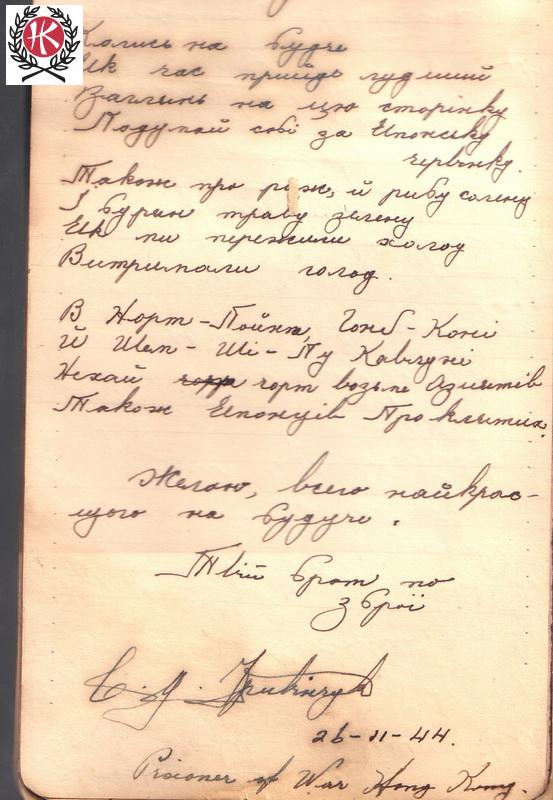 HK
Колись на будче
Як час прийде лудший
Заглынь на цю сторінку
Подумай собі за Японську
червінку.
Також про риж, й рибу солену
І бурян траву зелену
Як ми пережили холод
Витримали голод.
В Норт-Пойнт, Гонб-Коні
Й Шем-Ші-Пу Кавлуні
Нехай чорт возьме Азиятів
Також Японців Проклятих.
Желаю, всего найкрас-
щого на будуче.
Твій брат по
зброї
26-11-44.
Prisioner of War Hong Kong.